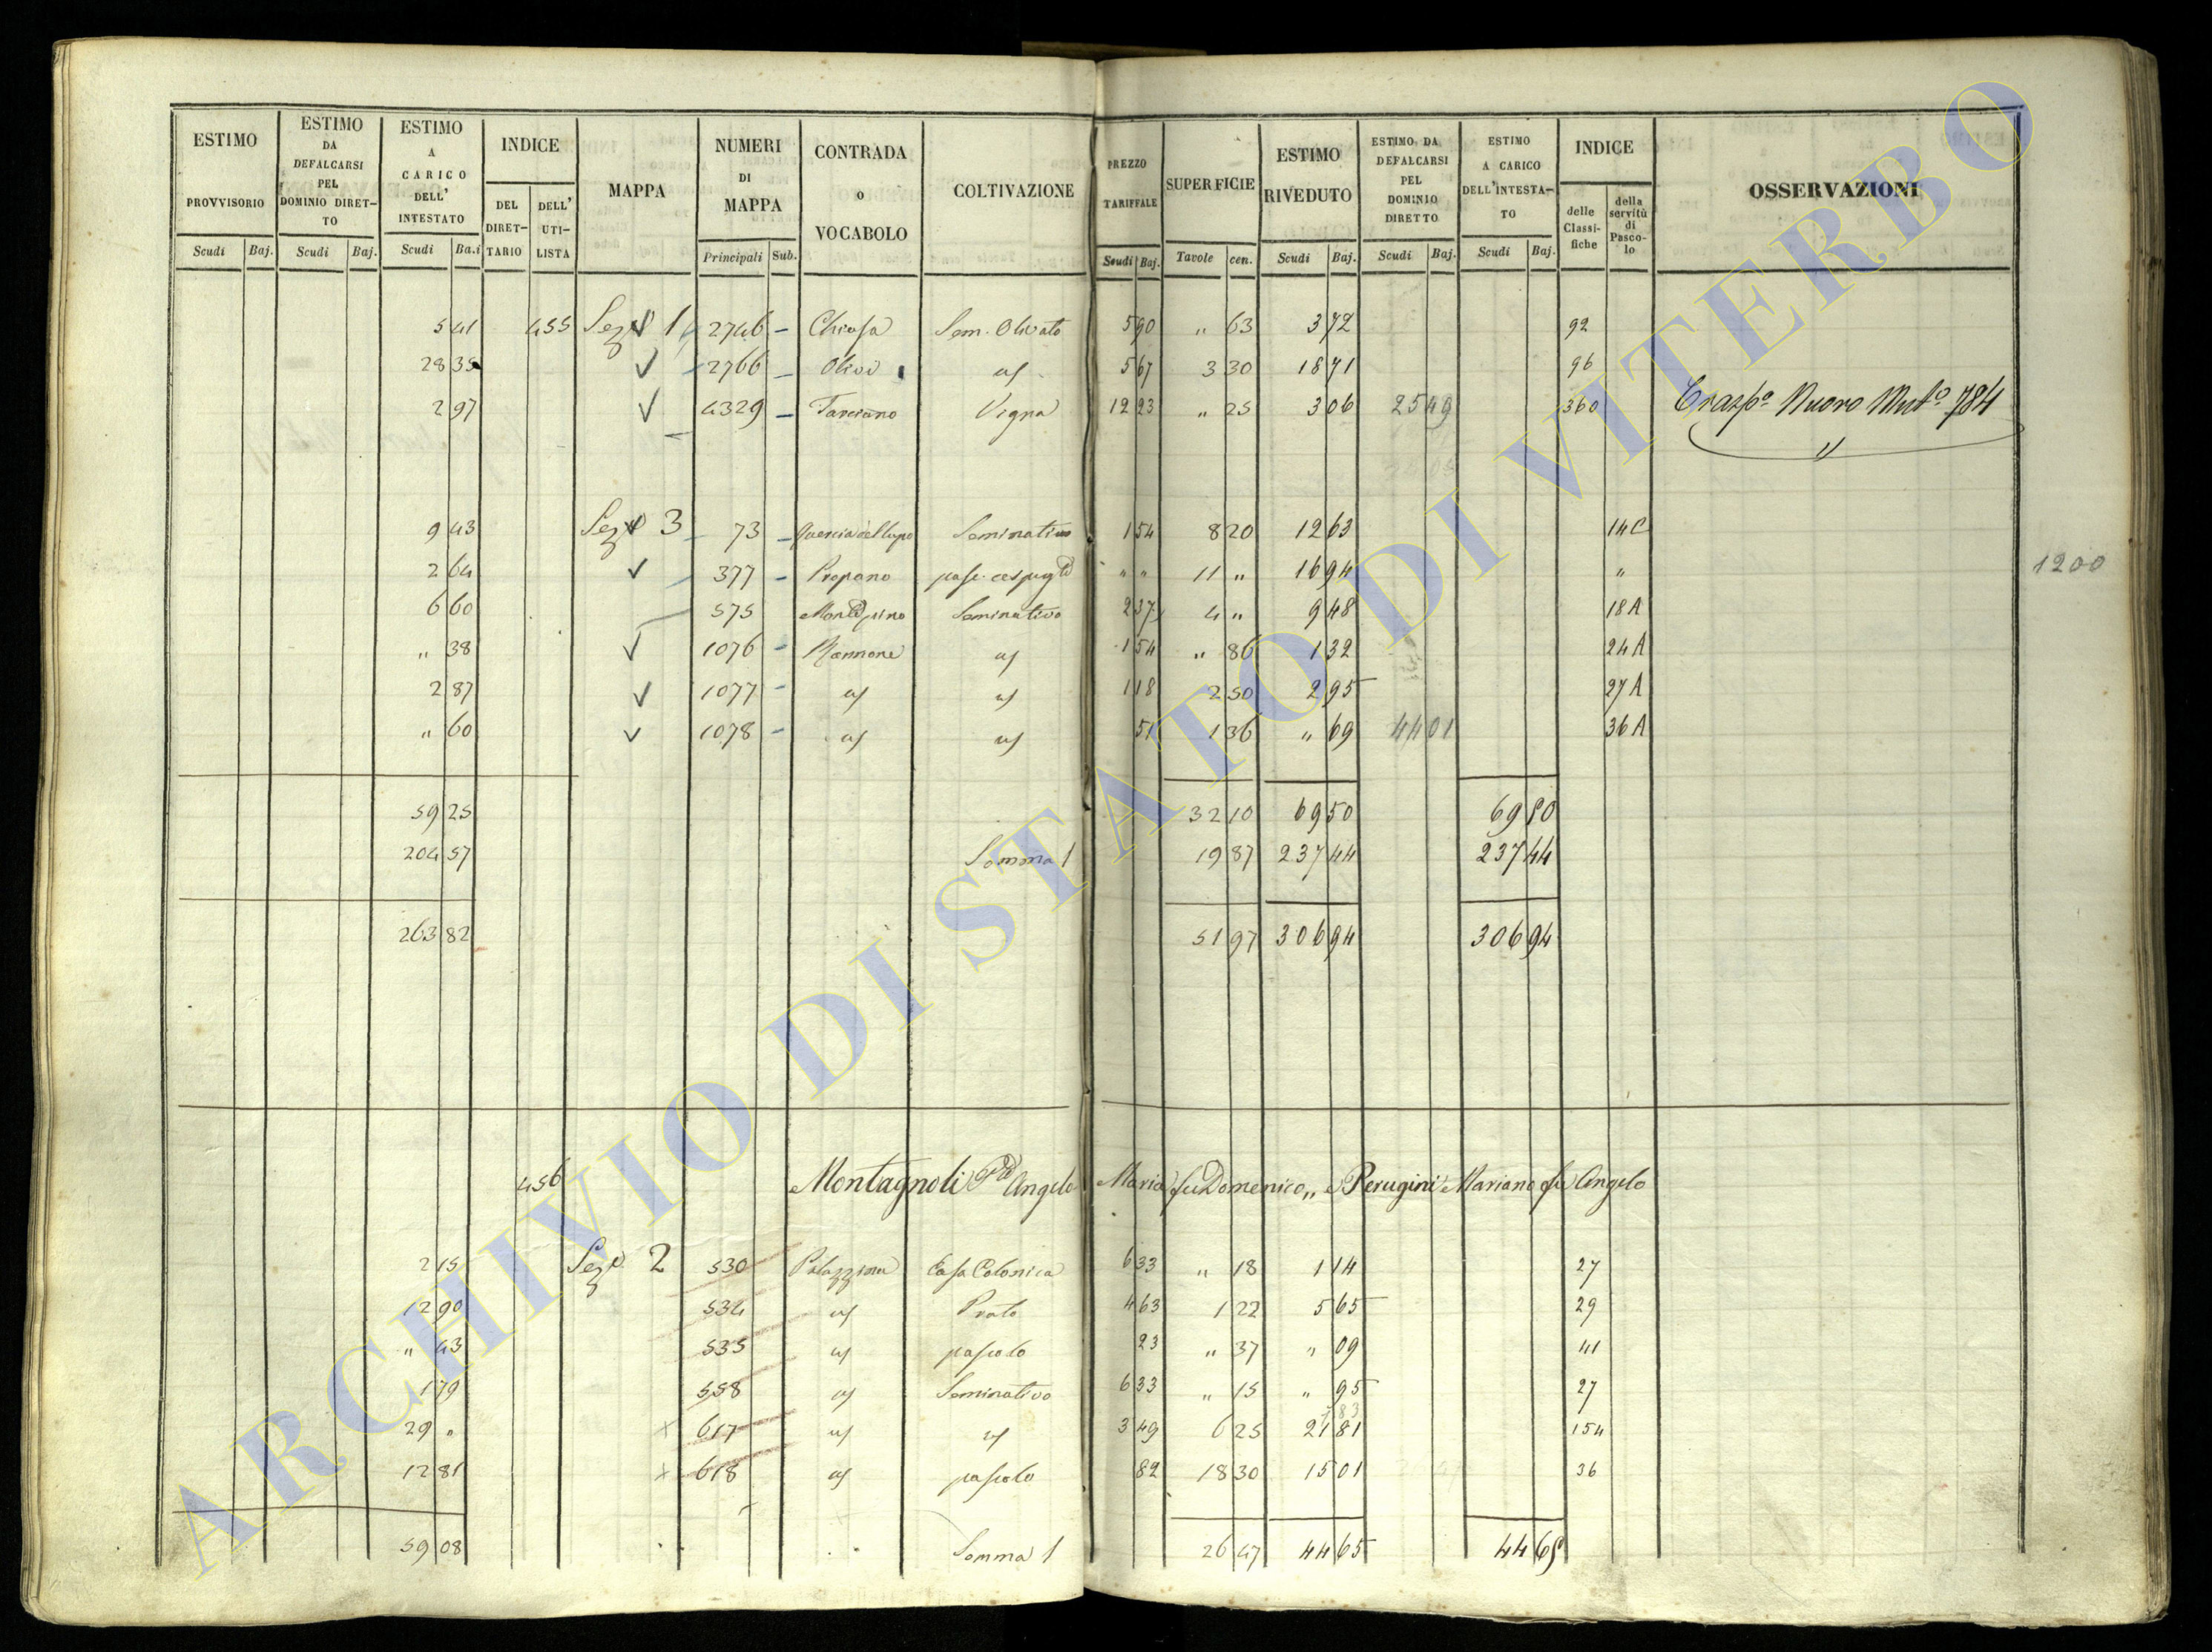 ESTIMO PROVVISORIO ESTIMO DA DEFALCARSI PEL DOMINIO DIRETTO ESTIMO A CARICO DELL' INTESTATO INDICE DEL DIRETTARIO DELL' UTILISTA MAPPA NUMERI DI MAPPA CONTRADA o VOCABOLO COLTIVAZIONE PREZZO TARIFFALE SUPERFICIE ESTIMO RIVEDUTO ESTIMO DA DEFALCARSI PEL DOMINIO DIRETTO ESTIMO A CARICO DELL'INTESTATO INDICE delle Classifiche della servitù di Pascolo OSSERVAZIONI
Scudi Baj. Scudi Baj. Scudi Ba.i Principali Sub. Scudi Baj. Tavole cen. Scudi Baj. Scudi Baj. Scudi Baj.
5 41 455 Sez 1 2746 – Chiusa Sem. Olivato 5 90 " 63 3 72 92
28 35 2766 – Olivi uf 5 67 3 30 18 71 96
2 97 4329 – Vigna 12 23 " 25 3 06 25 49 360 Nuovo 784
9 43 Sez 3 73 – Quercia del lupo Seminativo 1 54 8 20 12 63 14 C
2 64 377 – Propano " " 11 " 16 94 "
6 60 575 Seminativo 2 37 4 " 9 48 18 A
" 38 1076 – uf 1 54 " 86 1 32 24 A
2 87 1077 – uf uf 1 18 2 50 2 95 27 A
" 60 1078 – uf uf 51 1 36 " 69 44 01 36 A
59 25 32 10 69 50 69 50
204 57 Somma 1 19 87 237 44 237 44
263 82 51 97 306 94 306 94
1200
456 Montagnoli Angelo Maria fu Domenico, e Perugini Mariano fu Angelo
2 15 Sez 2 530 Palazzina Casa Colonica 6 33 " 18 1 14 27
12 90 534 uf Prato 4 63 1 22 5 65 29
" 43 535 uf pascolo 23 " 37 " 09 41
1 79 558 uf Seminativo 6 33 " 15 " 95 27
29 " 617 uf uf 3 49 6 25 21 81 154
12 81 618 uf pascolo 82 18 30 15 01 36
59 08 Somma 1 26 47 44 65 44 65
ARCHIVIO DI STATO DI VITERBO